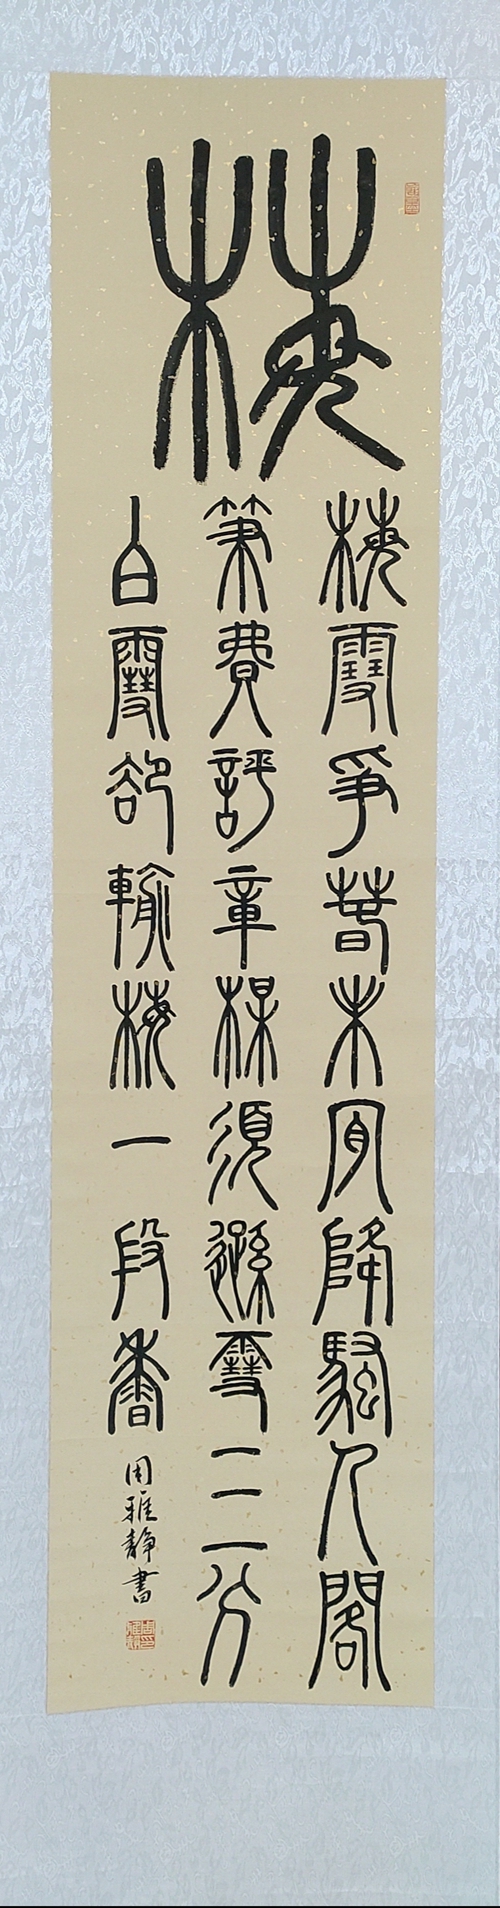 梅
梅雪爭春未肯降騷人閣
筆費評章楳須遜雪三分
白雪卻輸梅一段香
周雅静書